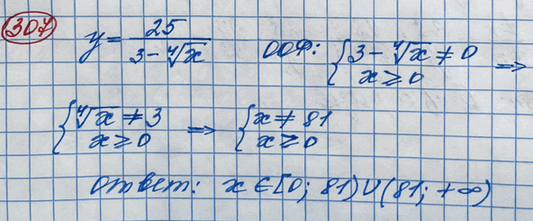 307
y = 25 / (3 - ⁴√x)   ООФ: { 3 - ⁴√x ≠ 0 ; x ⩾ 0 ⇒
{ ⁴√x ≠ 3 ; x ⩾ 0 ⇒ { x ≠ 81 ; x ⩾ 0
ответ: x ∈ [0; 81) ∪ (81; +∞)